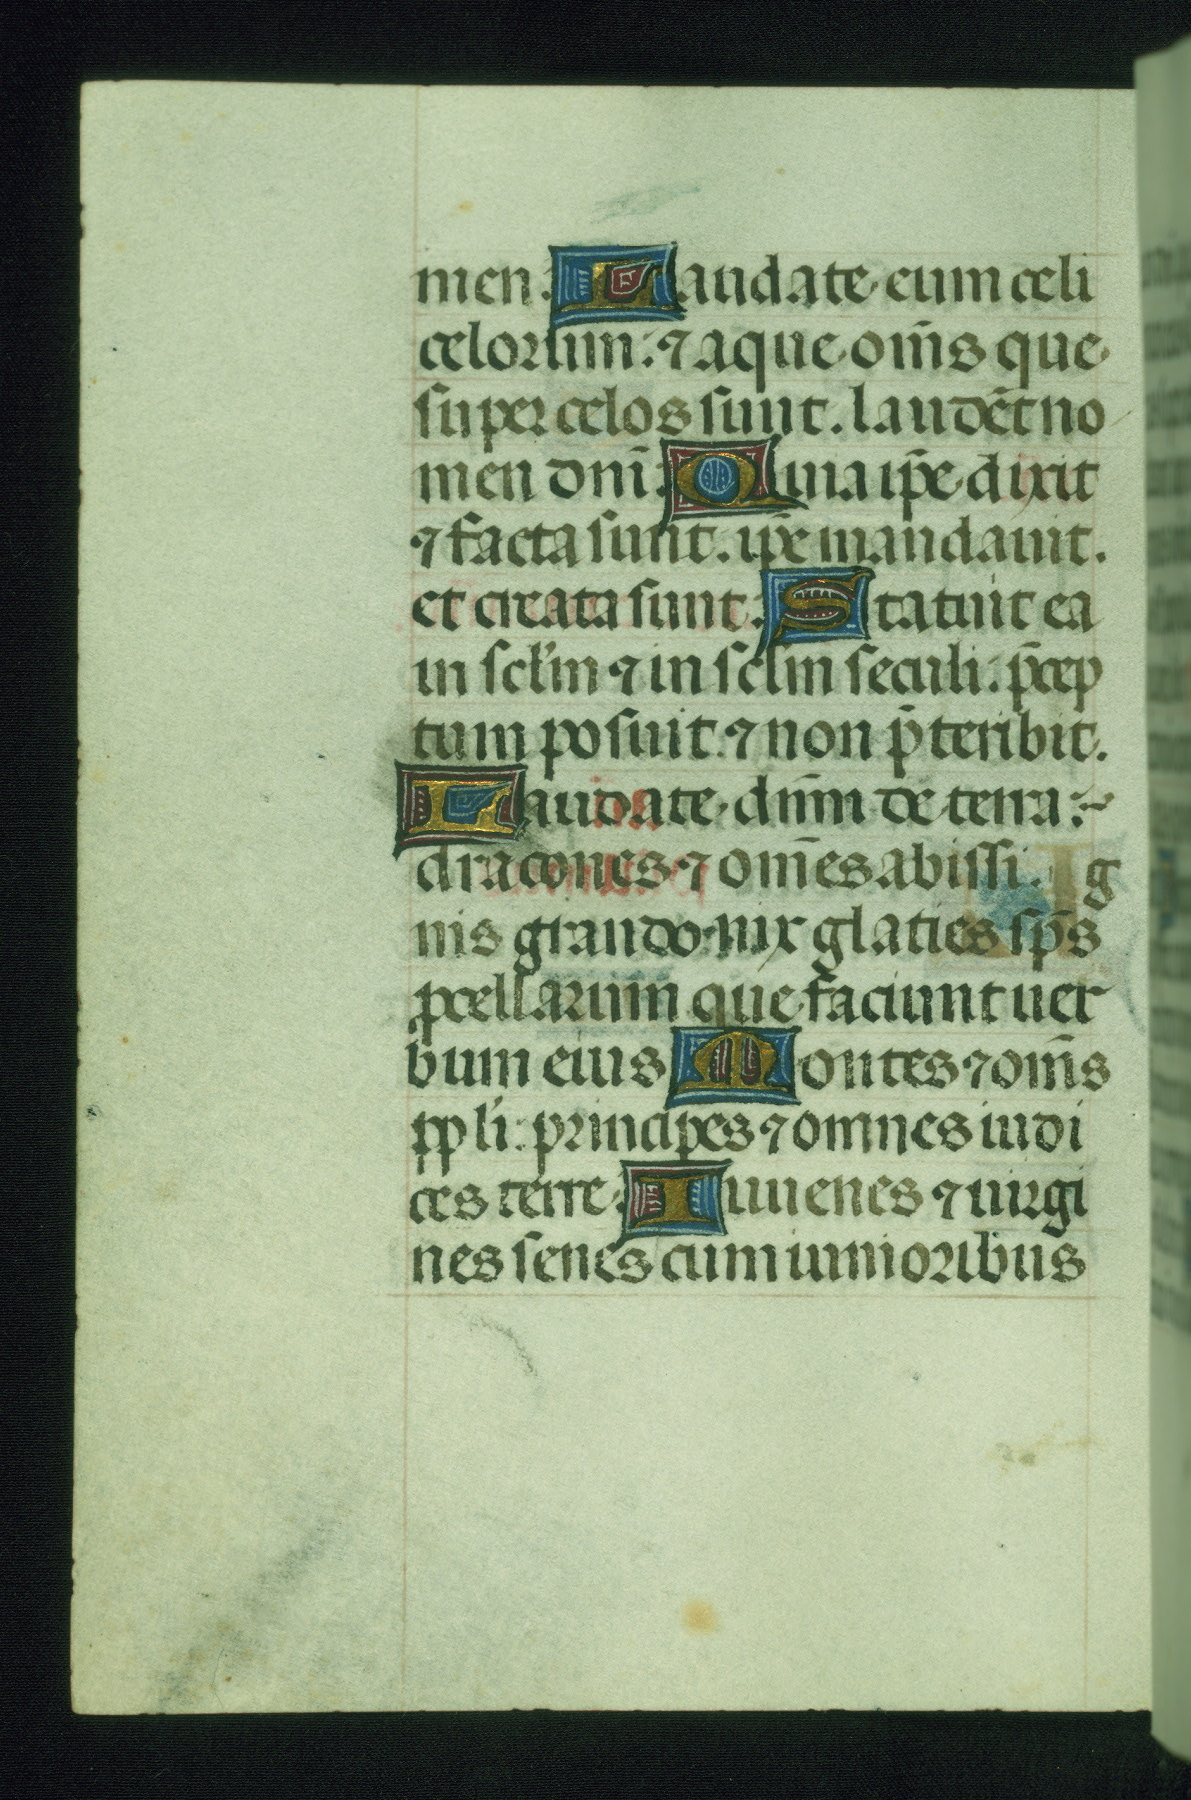 men. Laudate eum celi
celorum: ⁊ aque om̄s que
super celos sunt. laudēt no
men dnī. Quia ip̄e dixit
⁊ facta sunt. ip̄e mandauit.
et creata sunt. Statuit ea
in sclm̄ ⁊ in sclm̄ seculi: p̄cep
tum posuit. ⁊ non p̄teribit.
Laudate dnm̄ de terra:~
dracones ⁊ om̄es abissi. Ig
nis grando nix glaties sp̄s
ꝓcellarum que faciunt uer
bum eius Montes ⁊ om̄s
ppl̄i: principes ⁊ omnes iudi
ces terre. Iuuenes ⁊ uirgi
nes senes cum iunioribus